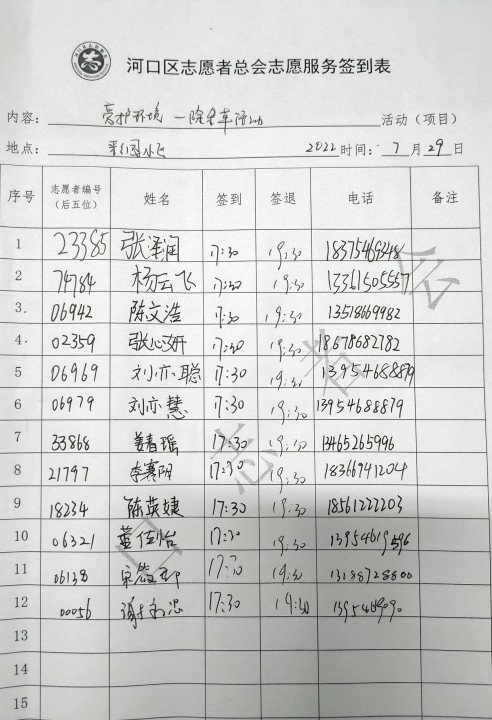 河口区志愿者总会志愿服务签到表
内容： 爱护环境 一 活动 活动（项目）
地点： 2022 时间： 7 月 29 日
序号 志愿者编号（后五位） 姓名 签到 签退 电话 备注
1 23385 张泽润 17:30 19:30
2 74784 杨云飞 17:30 19:30 13361505557
3. 06942 陈文浩 17:30 19:30 13518669982
4. 02359 张心妍 17:30 19:30 18678682782
5 06969 刘亦聪 17:30 19:30 13954688879
6 06979 刘亦慧 17:30 19:30 13954688879
7 33868 姜春瑶 17:30 19:30 13465265996
8 21797 李赛阳 17:30 19:30 18366941204
9 18234 陈英婕 17:30 19:30 18561222203
10 06321 17:30 19:30
11 06138 17:30 19:30
12 00056 17:30 19:30
13
14
15
志 者 会